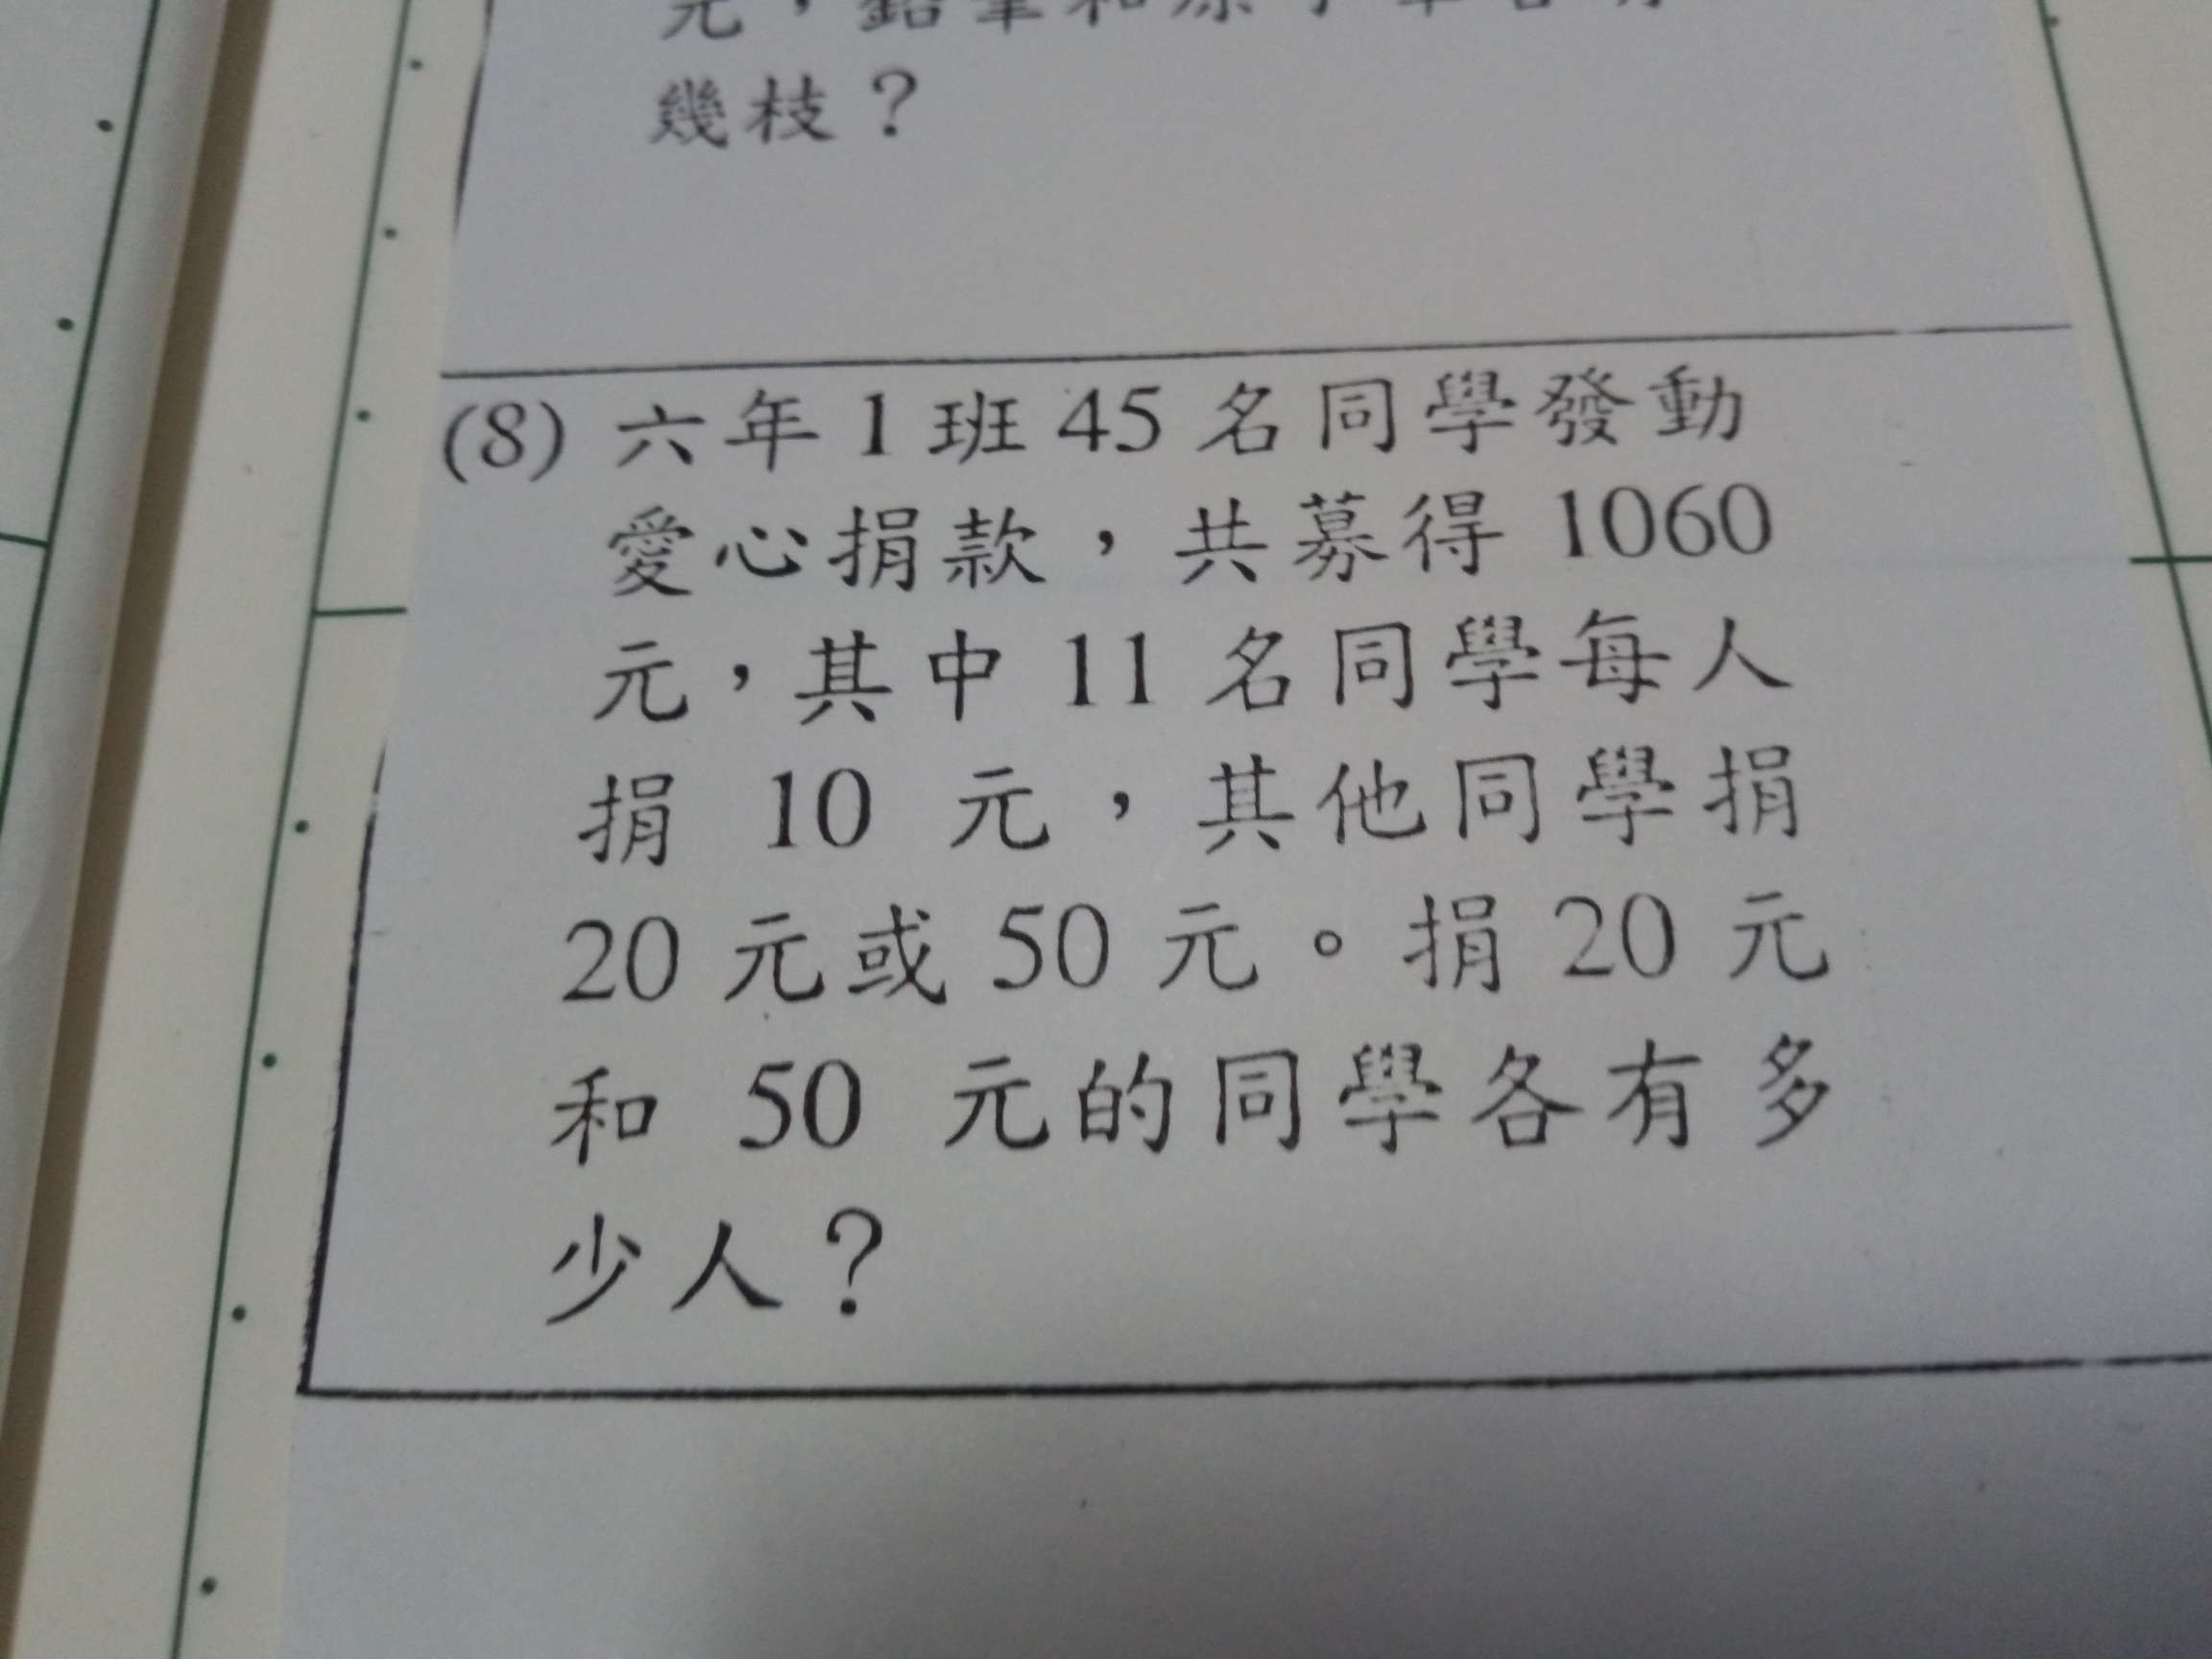 元，鉛筆和原子筆各
幾枝？
(8) 六年1班45名同學發動
愛心捐款，共募得1060
元，其中11名同學每人
捐 10 元，其他同學捐
20元或50元。捐20元
和 50 元的同學各有多
少人？